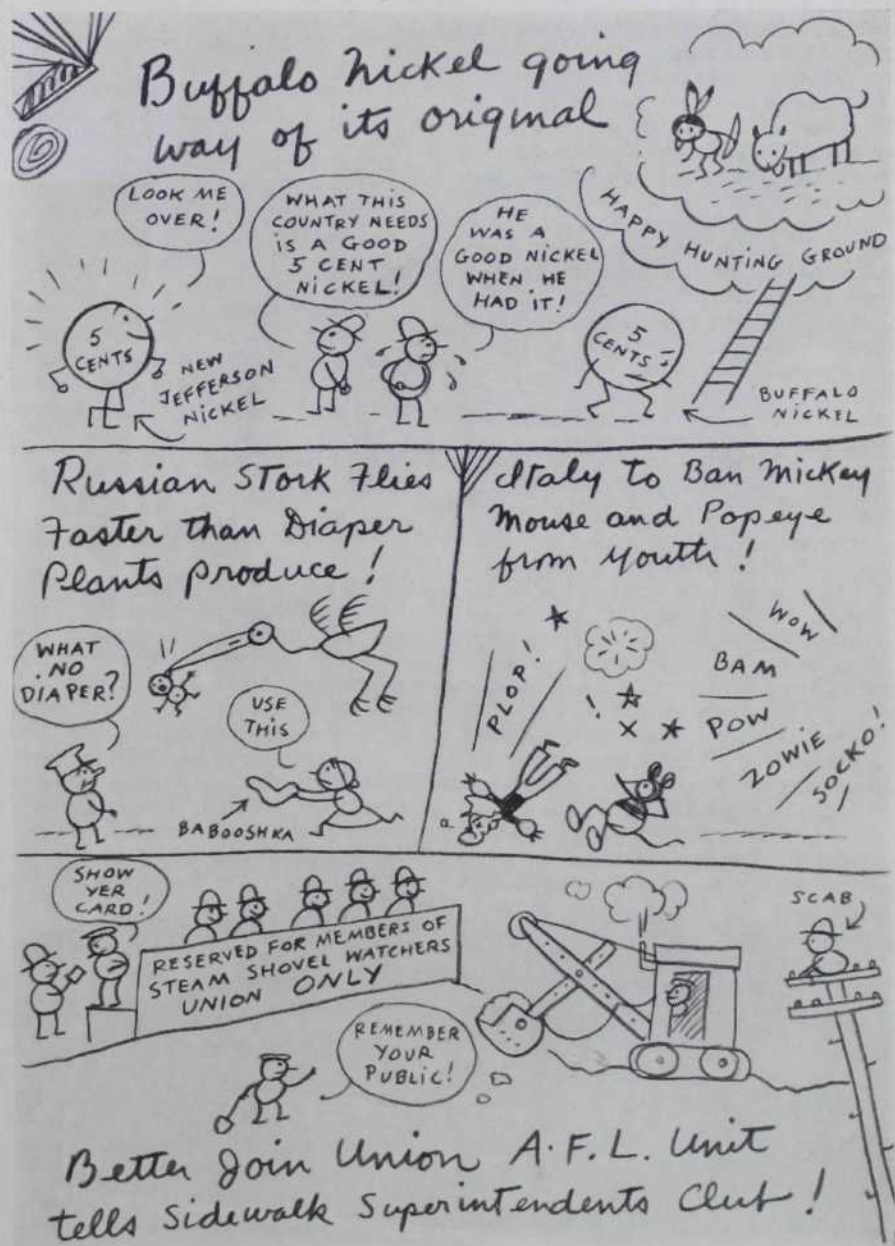 Buffalo Nickel going
way of its original
LOOK ME
OVER!
WHAT THIS
COUNTRY NEEDS
IS A GOOD
5 CENT
NICKEL!
HE
WAS A
GOOD NICKEL
WHEN HE
HAD IT!
HAPPY HUNTING GROUND
5
CENTS
NEW
JEFFERSON
NICKEL
5
CENTS
BUFFALO
NICKEL
Russian Stork Flies
Faster than Diaper
Plants Produce!
WHAT
NO
DIAPER?
USE
THIS
BABOOSHKA
Italy to Ban Mickey
Mouse and Popeye
from Youth!
PLOP!
!
WOW
BAM
POW
ZOWIE
SOCKO!
SHOW
YER
CARD!
RESERVED FOR MEMBERS OF
STEAM SHOVEL WATCHERS
UNION ONLY
SCAB
REMEMBER
YOUR
PUBLIC!
Better Join Union A.F.L. Unit
tells Sidewalk Superintendents Club!